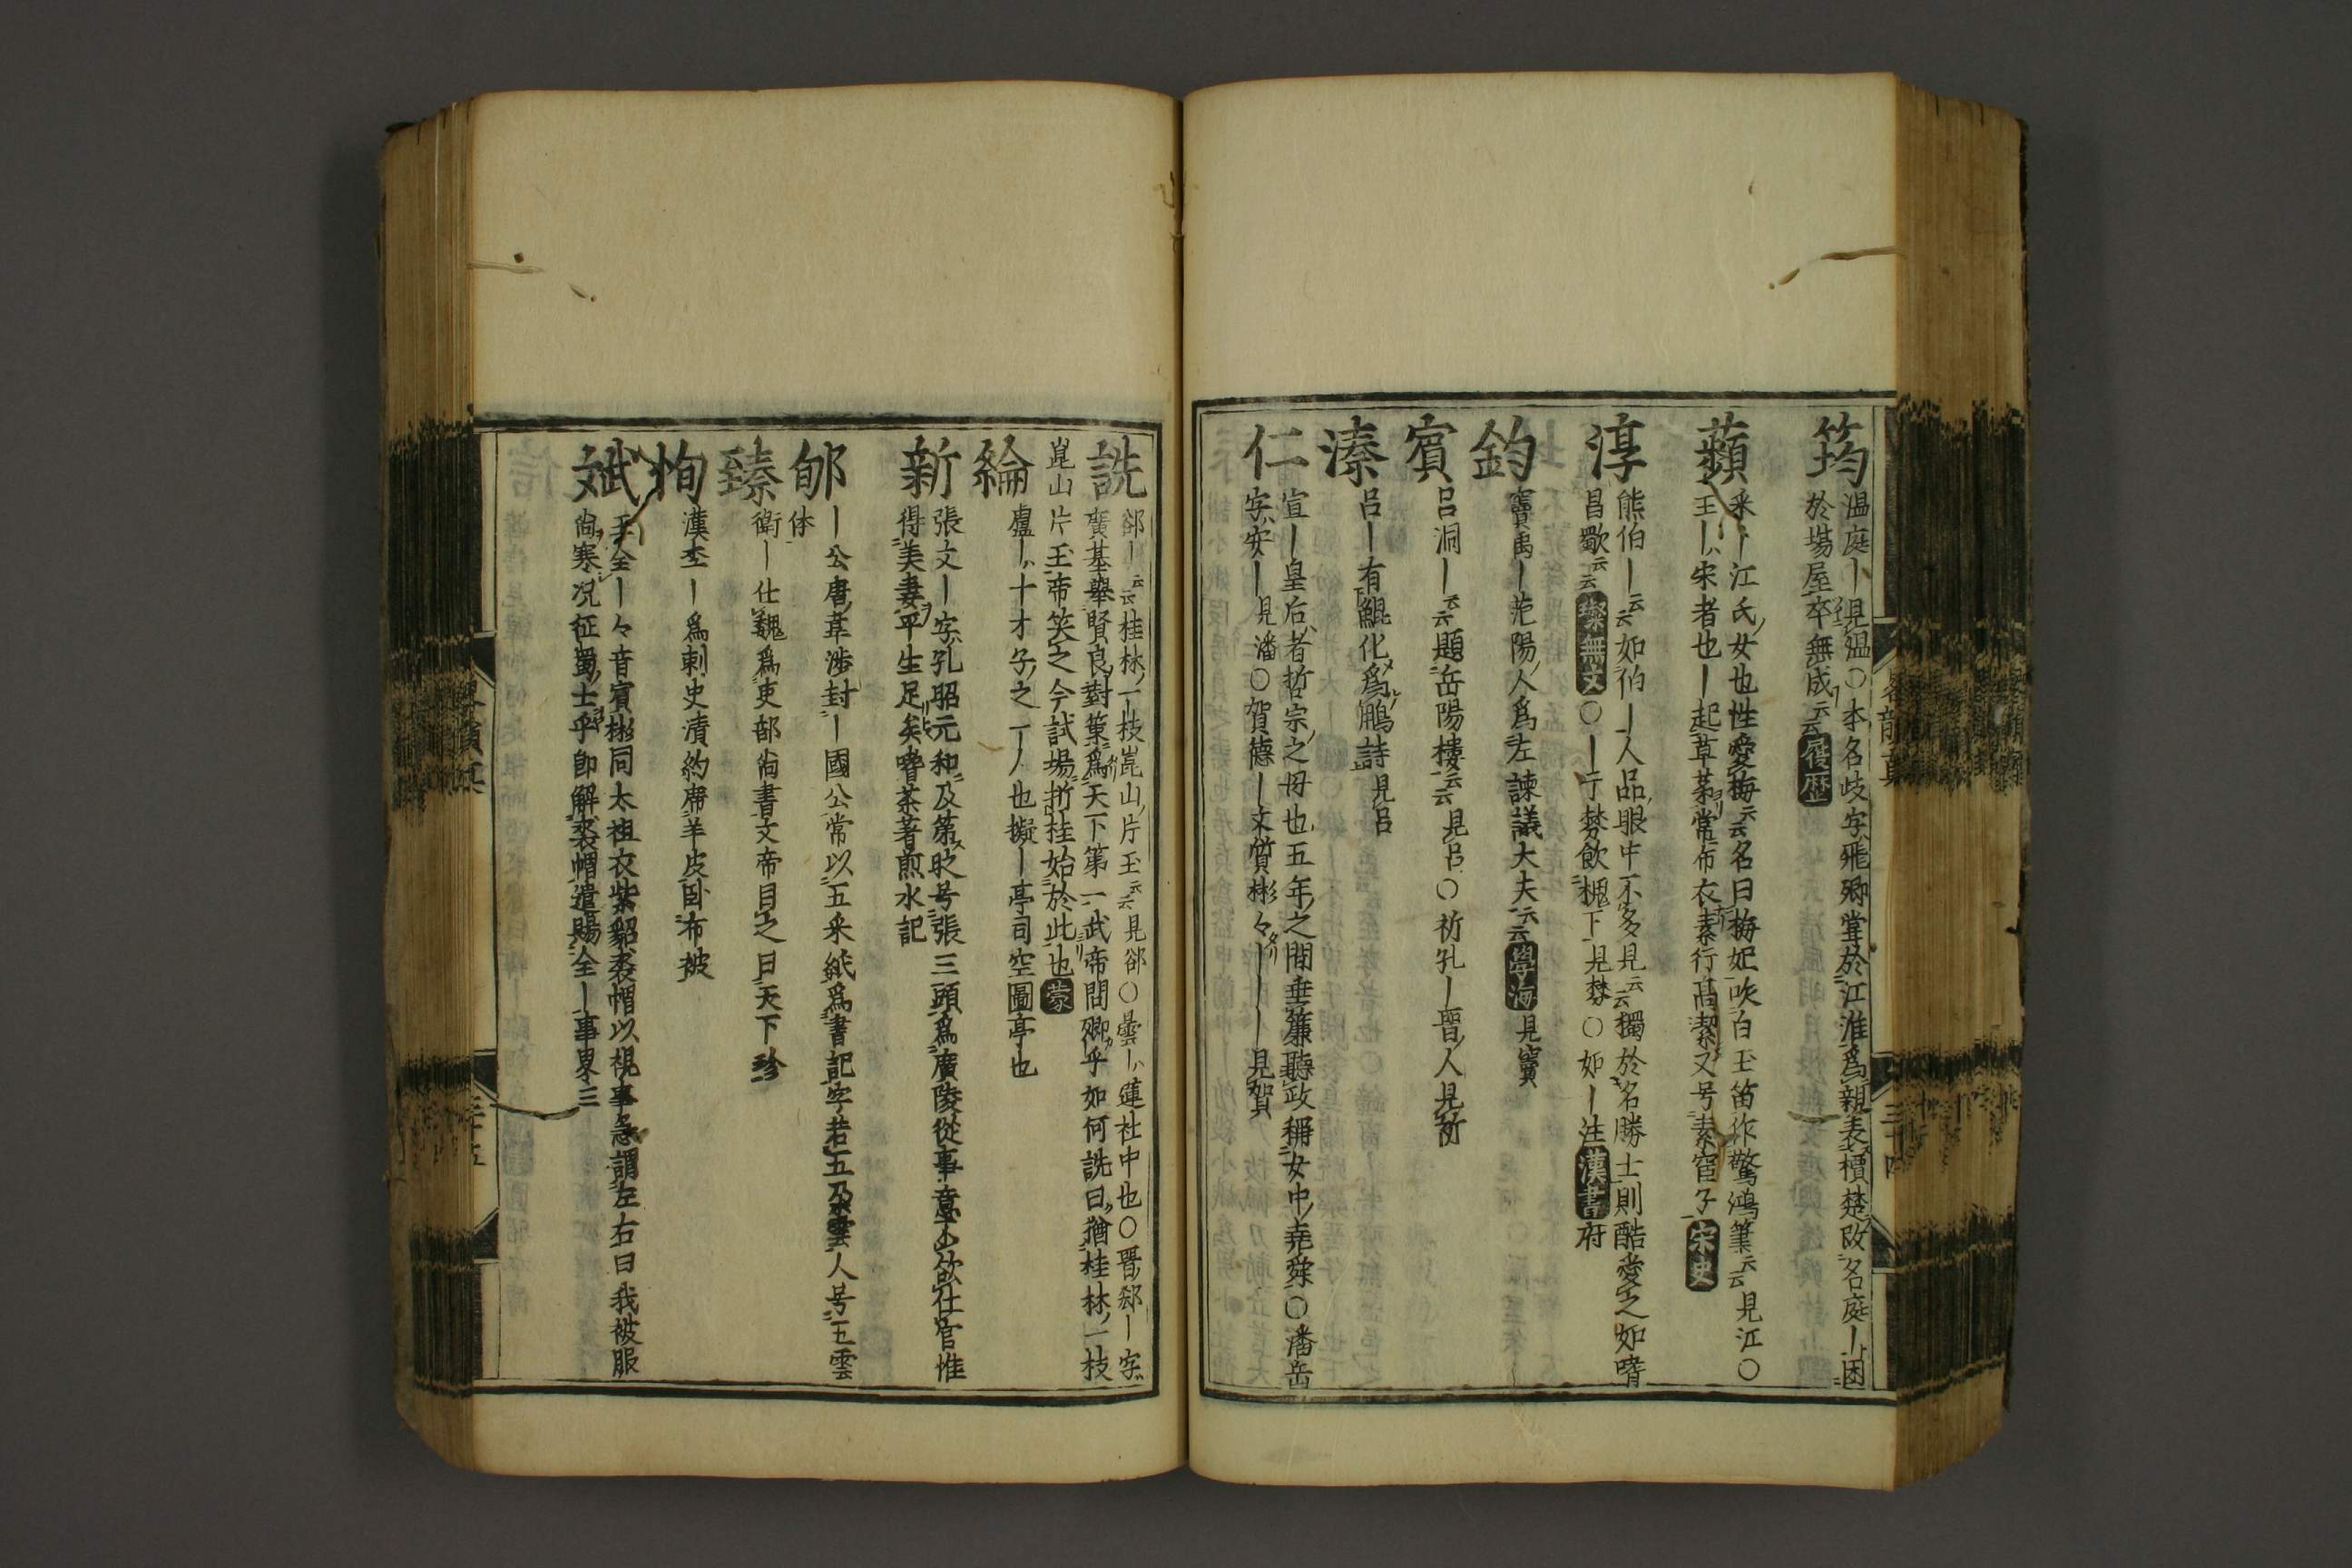 筠
温庭｜見温〇本名歧字飛卿甞於江淮爲親表檟楚改名庭｜困
於場屋卒無成云云履歴
蘋
釆｜江氏女也性愛梅云云名曰梅妃吹白玉笛作驚鴻筆云云見江〇
王｜宋者也｜起草茅常布衣素行高潔又号素宦子宋史
淳
熊伯｜云云如伯｜人品眼中不多見云云獨於名勝士則酷愛之如嗜
昌歜云云〇｜于棼飲槐下見棼〇如｜注漢書府
鈞
竇禹｜范陽人爲左諫議大夫云云學海見竇
賓
吕洞｜云云題岳陽樓云云見吕〇祈孔｜晋人見祈
溱
吕｜有鯤化爲鵬詩見吕
仁
宣｜皇后者哲宗之母也五年之間垂簾聽政稱女中堯舜〇潘岳
字安｜見潘〇賀德｜文質彬々｜｜｜見賀
詵
郤｜云云桂林一枝崑山片玉云云見郤〇曇｜蓮社中也〇晋郄｜字
廣基舉賢良對策爲天下第一武帝問卿乎如何詵曰猶桂林一枝
崑山片玉帝笑之今試場折桂始於此也蒙
綸
盧｜十才子之一人也擬｜亭司空圖亭也
新
張文｜字孔昭元和及第号張三頭爲廣陵從事意不欲仕官惟
得美妻平生足矣嗜茶著煎水記
郇
｜公唐韋渉封｜國公常以五采紙爲書記字若五朶雲人号五雲
体
臻
衛｜仕魏爲吏部尚書文帝目之曰天下珍
恂
漢李｜爲刺史清約席羊皮卧布被
斌
王全｜々音賓彬同太祖衣紫貂裘帽以視事急謂左右曰我被服
尚寒況征蜀士乎即解裘帽遣賜全｜事畧三